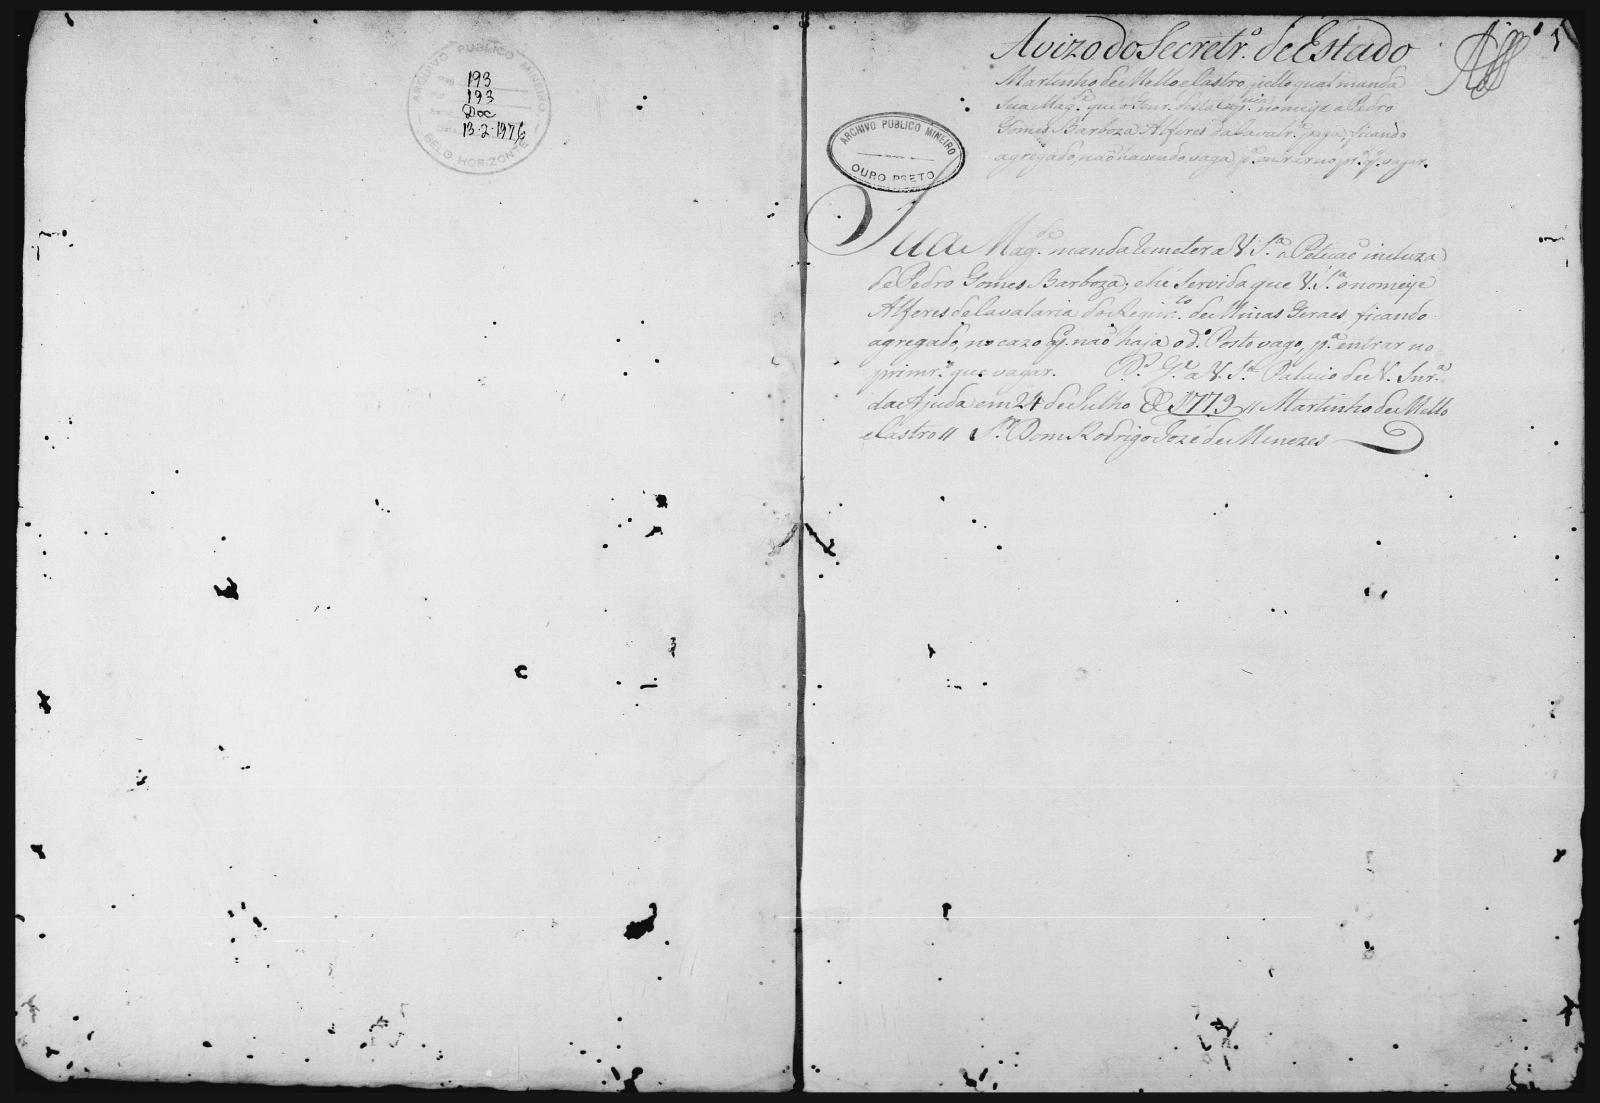 ARQUIVO PUBLICO MINEIRO
193
193
Doc
13-2-1976
BELO HORIZONTE
1
Avizo do Secretr.º de Estado
Martinho de Mello e Castro, pello qual manda
Sua Mag.de que o Snr. desta Capnia nomeye a Pedro
Gomes Barboza Alferes da Cavalr.ª paga, ficando
agregado, não havendo vaga p.ª entrar no pr.º q. vagar.
ARCHIVO PUBLICO MINEIRO
OURO PRETO
Sua Mag.de manda Remeter a V. S.ª a Petição incluza
de Pedro Gomes Barboza; e hé Servida que V. S.ª o nomeye
Alferes de Cavalaria do Regim.to de Minas Geraes, ficando
agregado, no cazo q. não haja o d.º Posto vago, p.ª entrar no
primr.º que vagar. D.s G.e a V. S.ª Palacio de N. Snr.ª
da Ajuda em 24 de Julho de 1779 // Martinho de Mello
e Castro // S.r Dom Rodrigo Jozé de Menezes